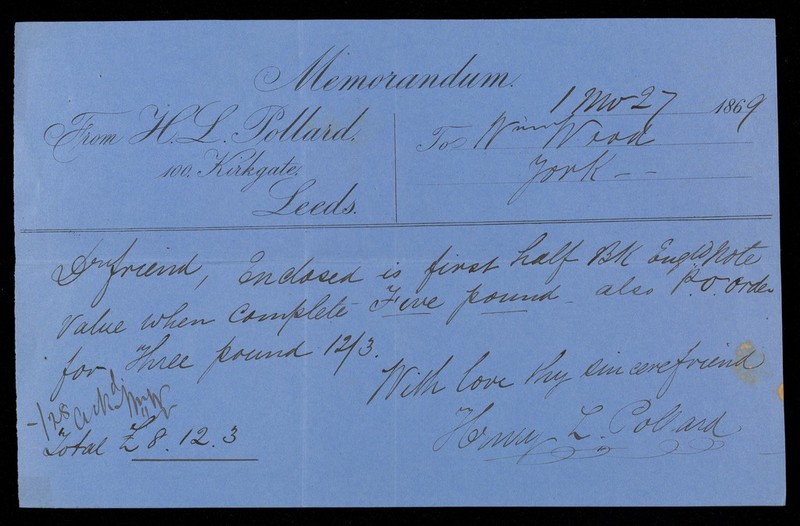 Memorandum.
1 Mo 27 1869
From H. L. Pollard,
100, Kirkgate,
Leeds.
To Wm Wood
York
Dr friend, Enclosed is first half BK Engld Note
Value when Complete Five pound also P.O. Order
for Three pound 12/3.
With love thy sincere friend
Henry L. Pollard
1/28 Ackd
Total £8.12.3